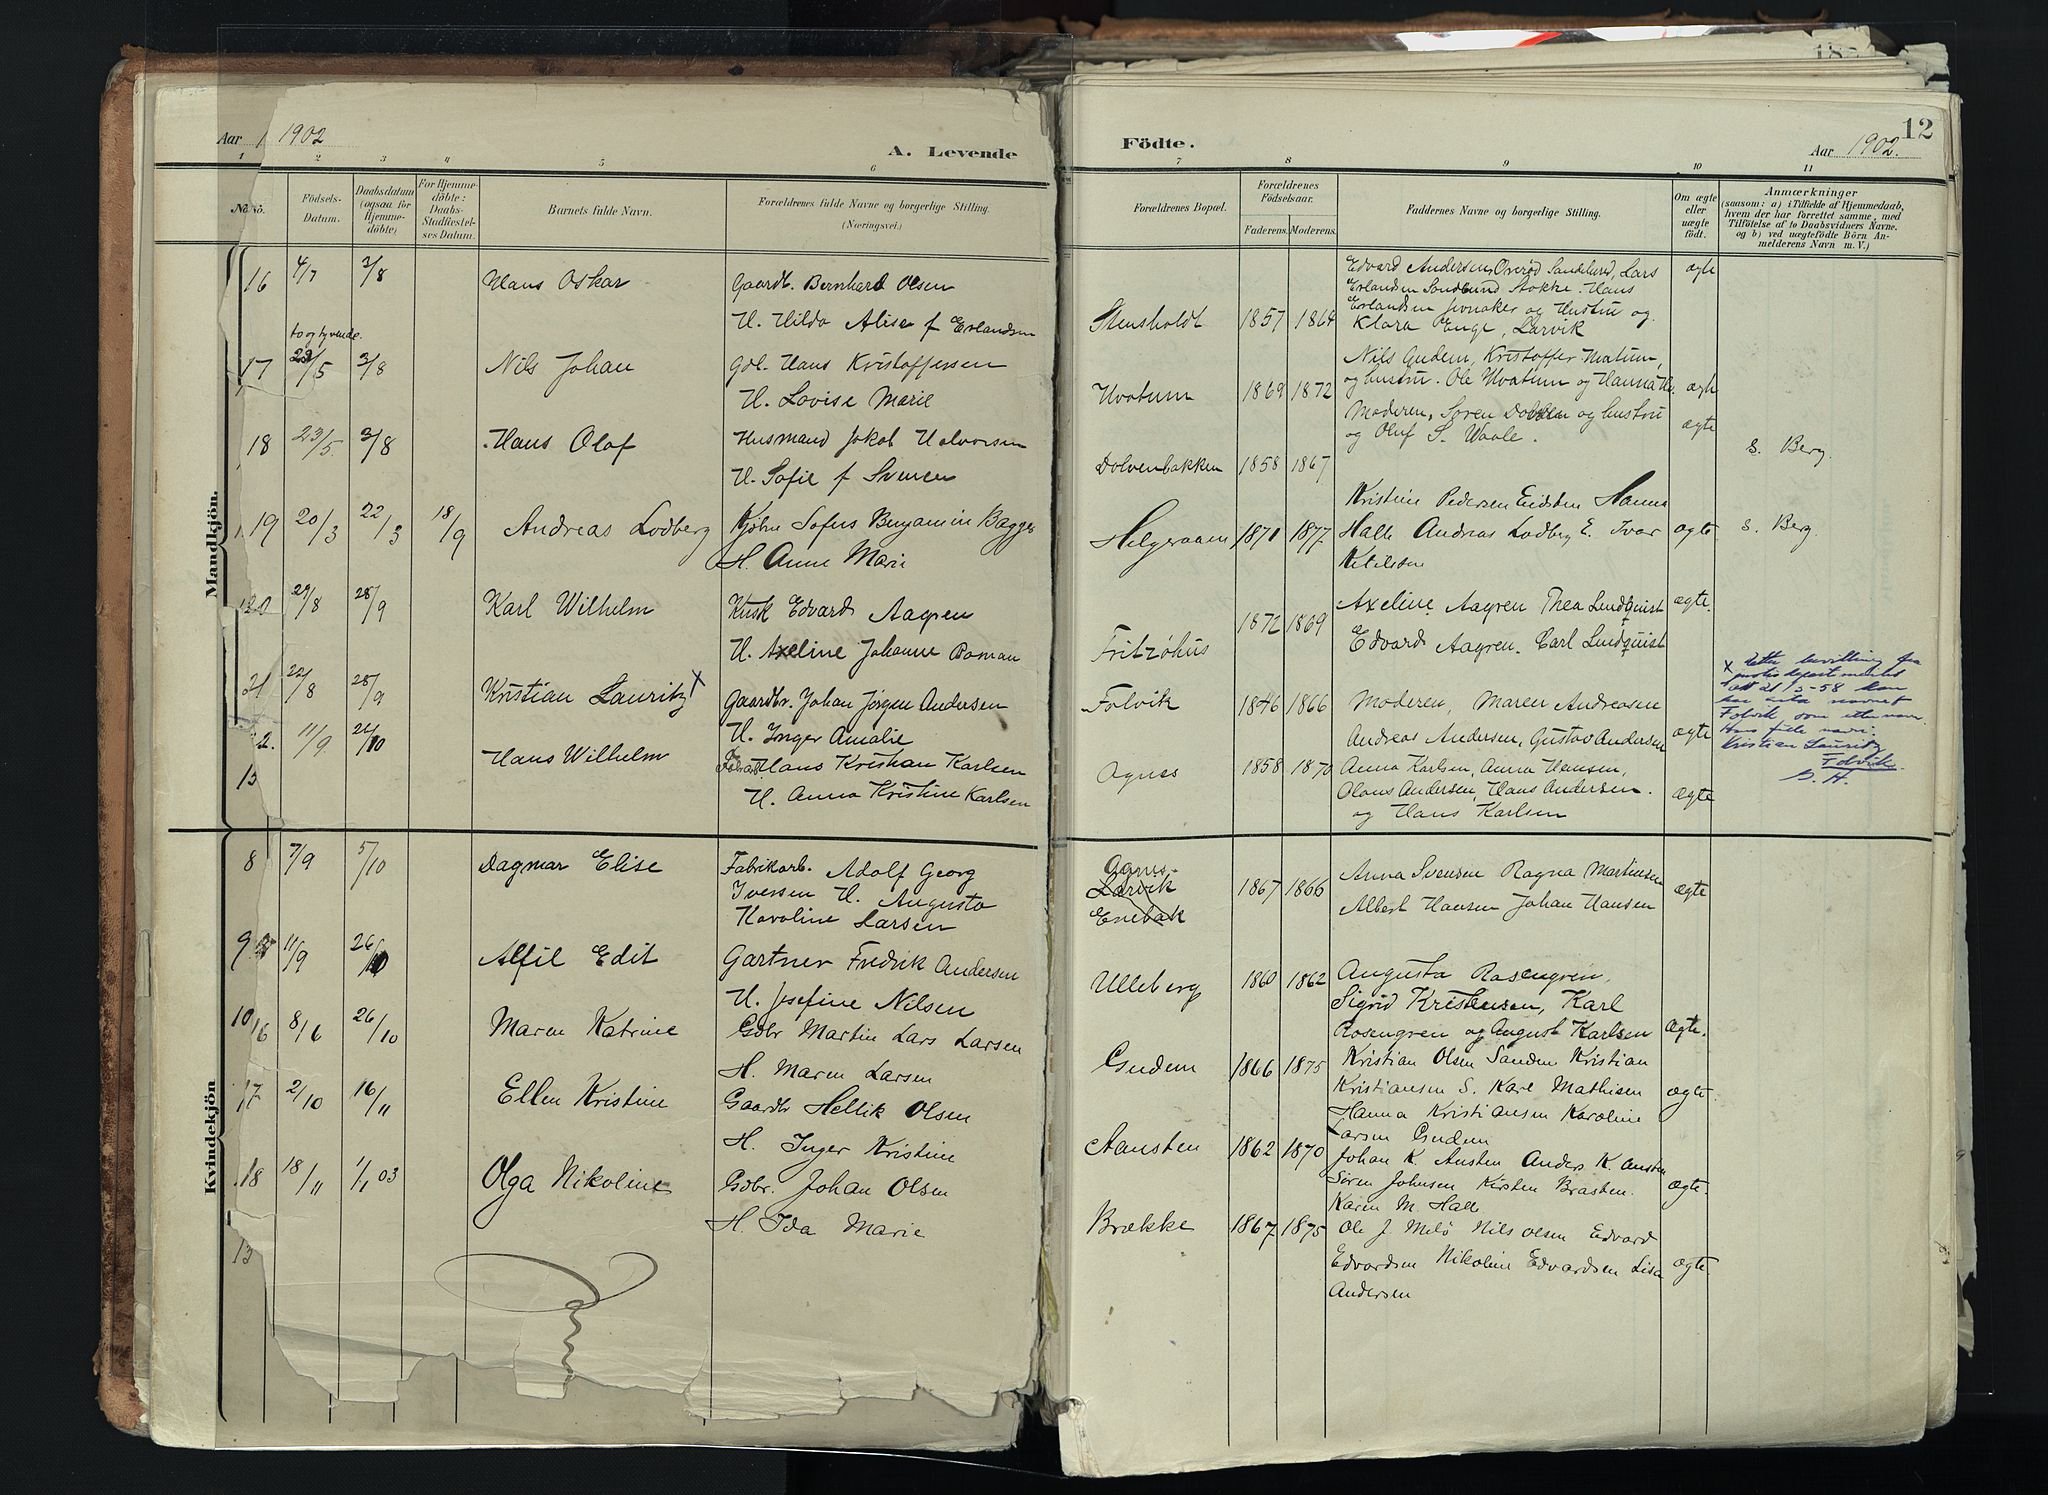 Aar 1902
A. Levende
Födte.
Aar 1902.
12
1 2 3 4 5 6 7 8 9 10 11
No.
Födsels-Datum.
Daabsdatum (ogsaa for Hjemme-döbte)
For Hjemme-döbte: Daabs-Stadfæstel-ses Datum.
Barnets fulde Navn.
Forældrenes fulde Navne og borgerlige Stilling. (Næringsvei.)
Forældrenes Bopæl.
Forældrenes Födselsaar.
Faderens. Moderens.
Faddernes Navne og borgerlige Stilling.
Om ægte eller uægte födt.
Anmærkninger
(saasom: a) i Tilfælde af Hjemmedaab, hvem der har forrettet samme, med Tilföielse af to Daabsvidners Navne. og b) ved uægtefödte Börn An-melderens Navn m. V.)
Mandkjön.
16 4/7 3/8 Hans Oskar Gaardb. Bernhard Olsen
H. Hilda Alise f Erlandsen
Stensholdt 1857 1864
Edvard Andersen, Sandelund, Lars
Erlandsen Sandlund Stokke. Hans
Erlandsen Jernaker og Hustru og
Klara Enge, Larvik
ægte
to og tyvende.
17 22/5 3/8 Nils Johan Gdl. Hans Kristoffersen
H. Lovise Marie
Hvatum 1869 1872
Nils Gudem, Kristoffer Hvatum,
og hustru. Ole Hvatum og Hanna
ægte
18 23/5 3/8 Hans Olaf Husmand Jakob Halvorsen
H. Sofie f Svensen
Dolvenbakken 1858 1867
Moderen, Søren Dolven og hustru
og Oluf S. Waale.
ægte
s. Berg.
19 20/3 22/3 18/9 Andreas Lodberg Kjøbm Sofus Benjamin Bagger
H. Anne Marie
Helgeraaen 1871 1877
Kristine Pedersen Eidsten Hanna
Halle Andreas Lodberg E. Ivar
Ketilsen
ægte
s. Berg.
20 29/8 28/9 Karl Wilhelm Kusk Edvard Aagren
H. Axeline Johanne Boman
Fritzøhus 1872 1869
Axeline Aagren Thea Lundquist
Edvard Aagren. Carl Lundquist
ægte.
21 22/8 28/9 Kristian Lauritz x Gaardbr. Johan Jørgen Andersen
H. Inger Amalie
Folvik 1846 1866
Moderen, Maren Andreasen
Andreas Andersen, Gustav Andersen
ægte
x Etter bevilling fra
justisdepartementet
datt 21/3-58 kan
han ta navnet
Folvik som etternavn.
Hans fulle navn:
Kristian Lauritz
Folvik.
G. H.
22. 11/9 26/10 Hans Wilhelm Hans Kristian Karlsen
H. Anna Kristine Karlsen
Agnes 1858 1870
Anna Karlsen, Anna Hansen,
Olaus Andersen, Hans Andersen.
og Hans Karlsen
ægte
15
Kvindekjön
8 7/9 5/10 Dagmar Elise Fabrikarb. Adolf Georg
Iversen H. Augusta
Karoline Larsen
Agnes.
Larvik
Enebak
1867 1866
Anna Svensen Ragna Martinsen
Albert Hansen Johan Hansen
ægte
9 11/9 26/10 Alfil Edit Gartner Fredrik Andersen
H. Josefine Nilsen
Ulleberg 1860 1862
Augusta Rosengren,
Sigrid Kristensen, Karl
Rosengren og August Karlsen
ægte.
10 16 8/6 26/10 Maren Katrine Gdbr Martin Lars Larsen
H. Maren Larsen
Gudem 1866 1875
Kristian Olsen Sanden Kristian
Kristiansen S. Karl Mathisen
Hanna Kristiansen Karoline
Larsen Gudem
ægte.
17 2/10 16/11 Ellen Kristine Gaardbr Hellik Olsen
H. Inger Kristine
Aansten 1862 1870
Johan K. Austen Anders K. Austen
Søren Johnsen Kirsten Brasten.
Karen M. Halle
ægte.
18 18/11 1/1 03 Olga Nikoline Gdbr. Johan Olsen
H. Ida Marie
Brække 1867 1875
Ole J. Melø Nils Olsen Edvard
Edvardsen Nikoline Edvardsen Lisa
Andersen
ægte.
13